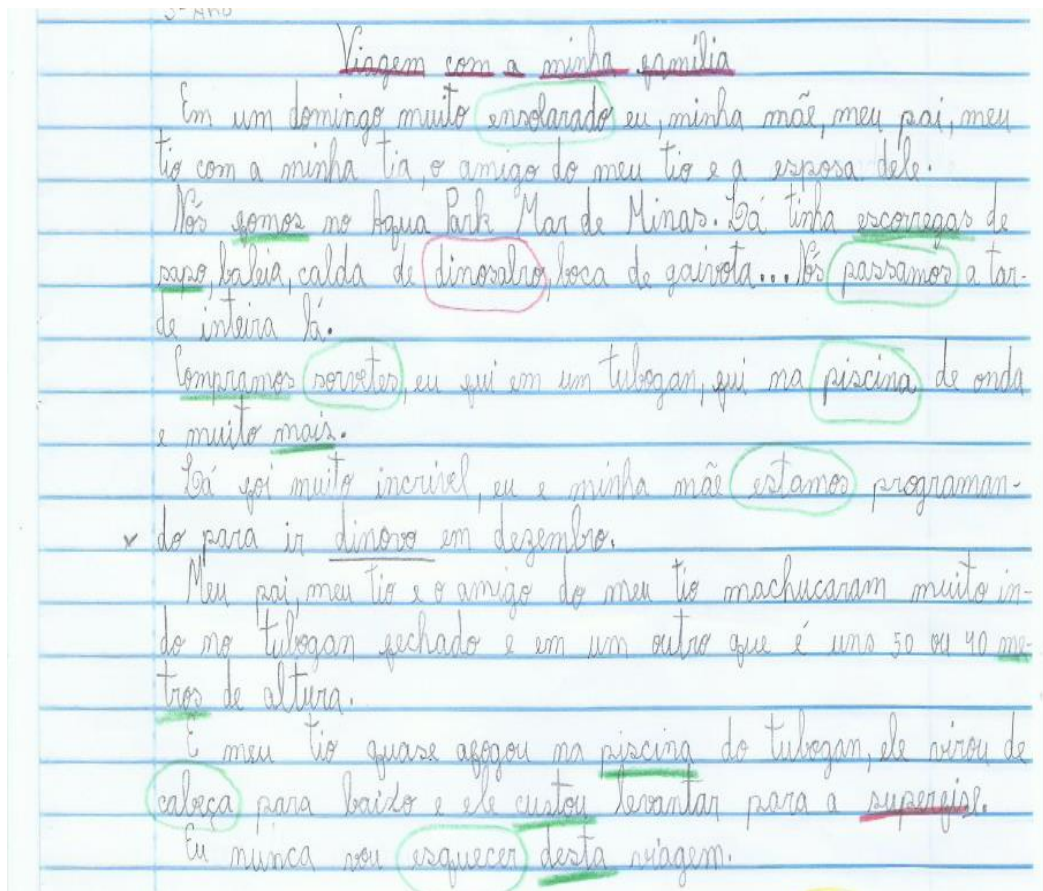 5º Ano
Viagem com a minha família
Em um domingo muito ensolarado eu, minha mãe, meu pai, meu
tio com a minha tia, o amigo do meu tio e a esposa dele.
Nós fomos no Aqua Park Mar de Minas. Lá tinha escorregas de
sapo, baleia, calda de dinosalro, boca de gaivota... Nós passamos a tar-
de inteira lá.
Compramos sorvetes, eu fui em um tubogan, fui na piscina de onda
e muito mais.
Lá foi muito incrível, eu e minha mãe estamos programan-
x do para ir dinovo em dezembro.
Meu pai, meu tio e o amigo do meu tio machucaram muito in-
do no tubogan fechado e em um outro que é uns 50 ou 40 me-
tros de altura.
E meu tio quase afogou na piscina do tubogan, ele virou de
cabeça para baixo e ele custou levantar para a
Eu nunca vou esquecer desta viagem.